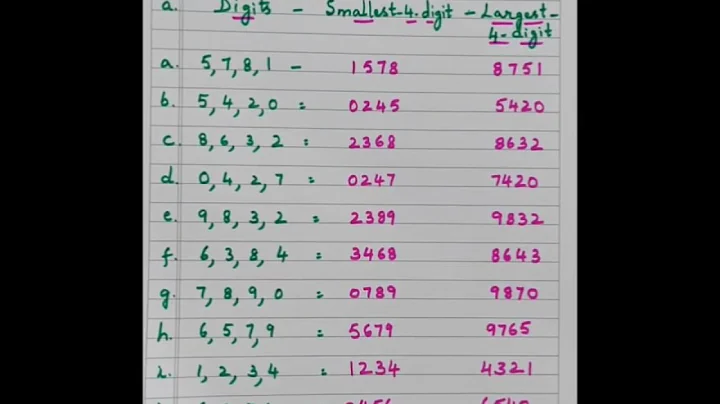 a. Digits - Smallest-4-digit - Largest-
4-digit
a. 5,7,8,1 - 1578 8751
b. 5, 4, 2, 0 = 0245 5420
c. 8, 6, 3, 2 : 2368 8632
d. 0, 4, 2, 7 = 0247 7420
e. 9, 8, 3, 2 = 2389 9832
f. 6, 3, 8, 4 : 3468 8643
g. 7, 8, 9, 0 = 0789 9870
h. 6, 5, 7, 9 = 5679 9765
i. 1, 2, 3, 4 = 1234 4321